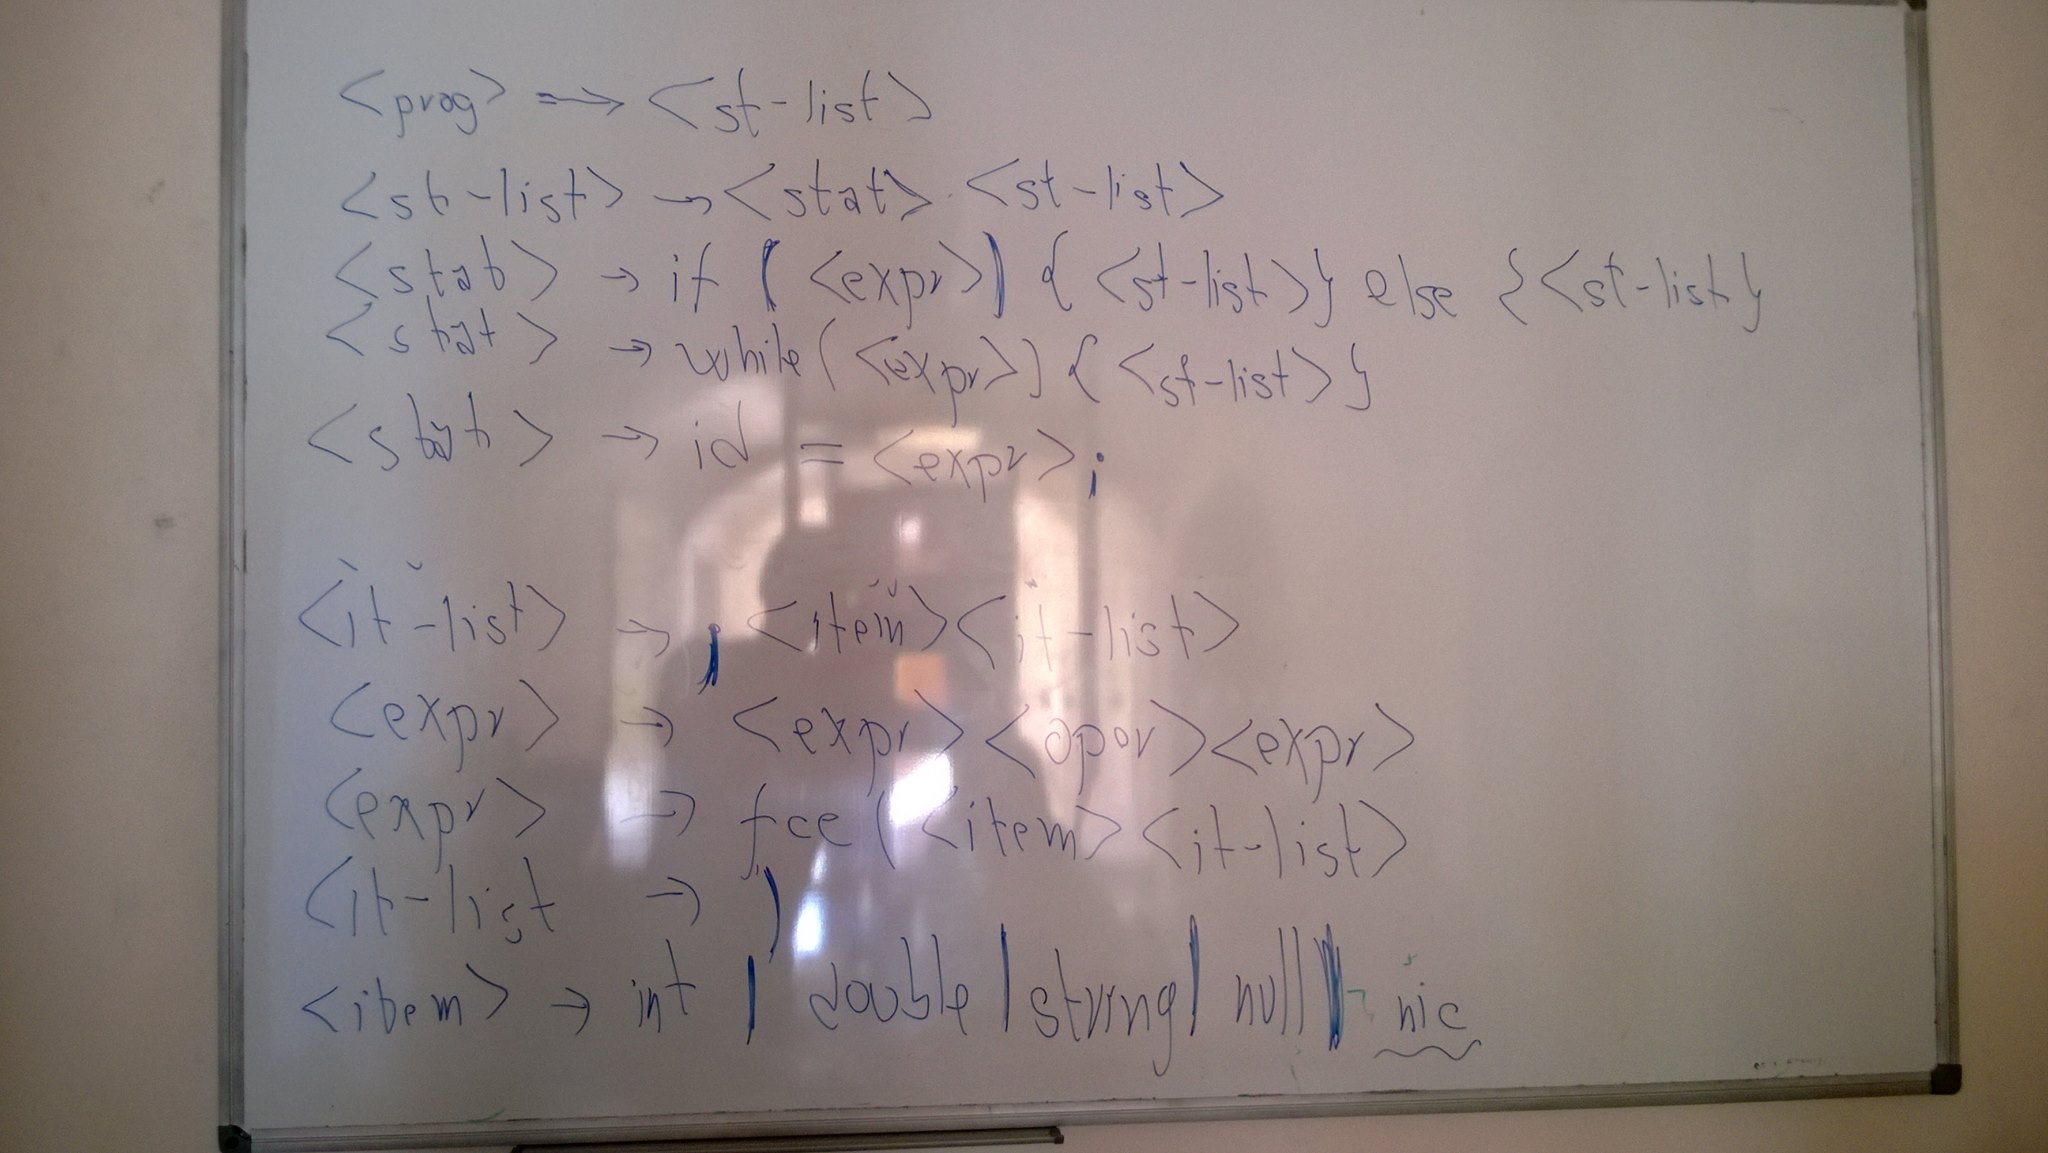 <prog> => <st-list>
<st-list> → <stat> <st-list>
<stat> → if ( <expr>) { <st-list>} else {<st-list}
<stat> → while(<expr>) { <st-list>}
<stat> → id = <expr>;
<it-list> → , <item><it-list>
<expr> → <expr><oper><expr>
<expr> → fce(<item><it-list>
<it-list → )
<item> → int | double | string | null | nic